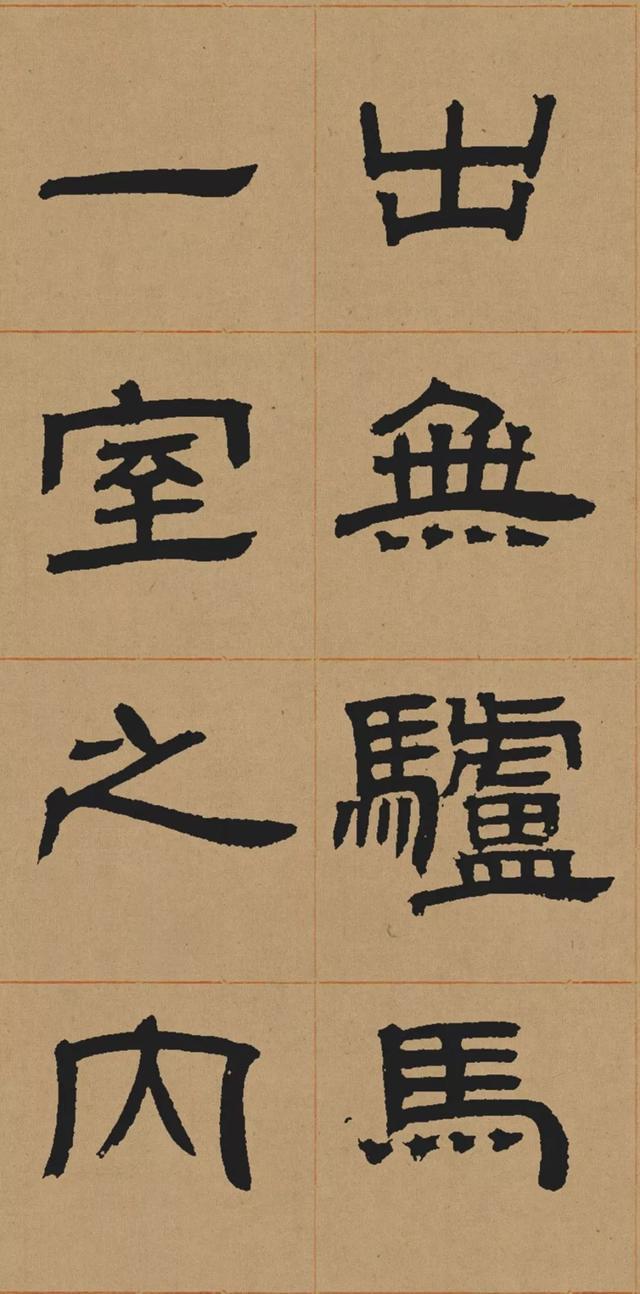 出無驢馬
一室之內